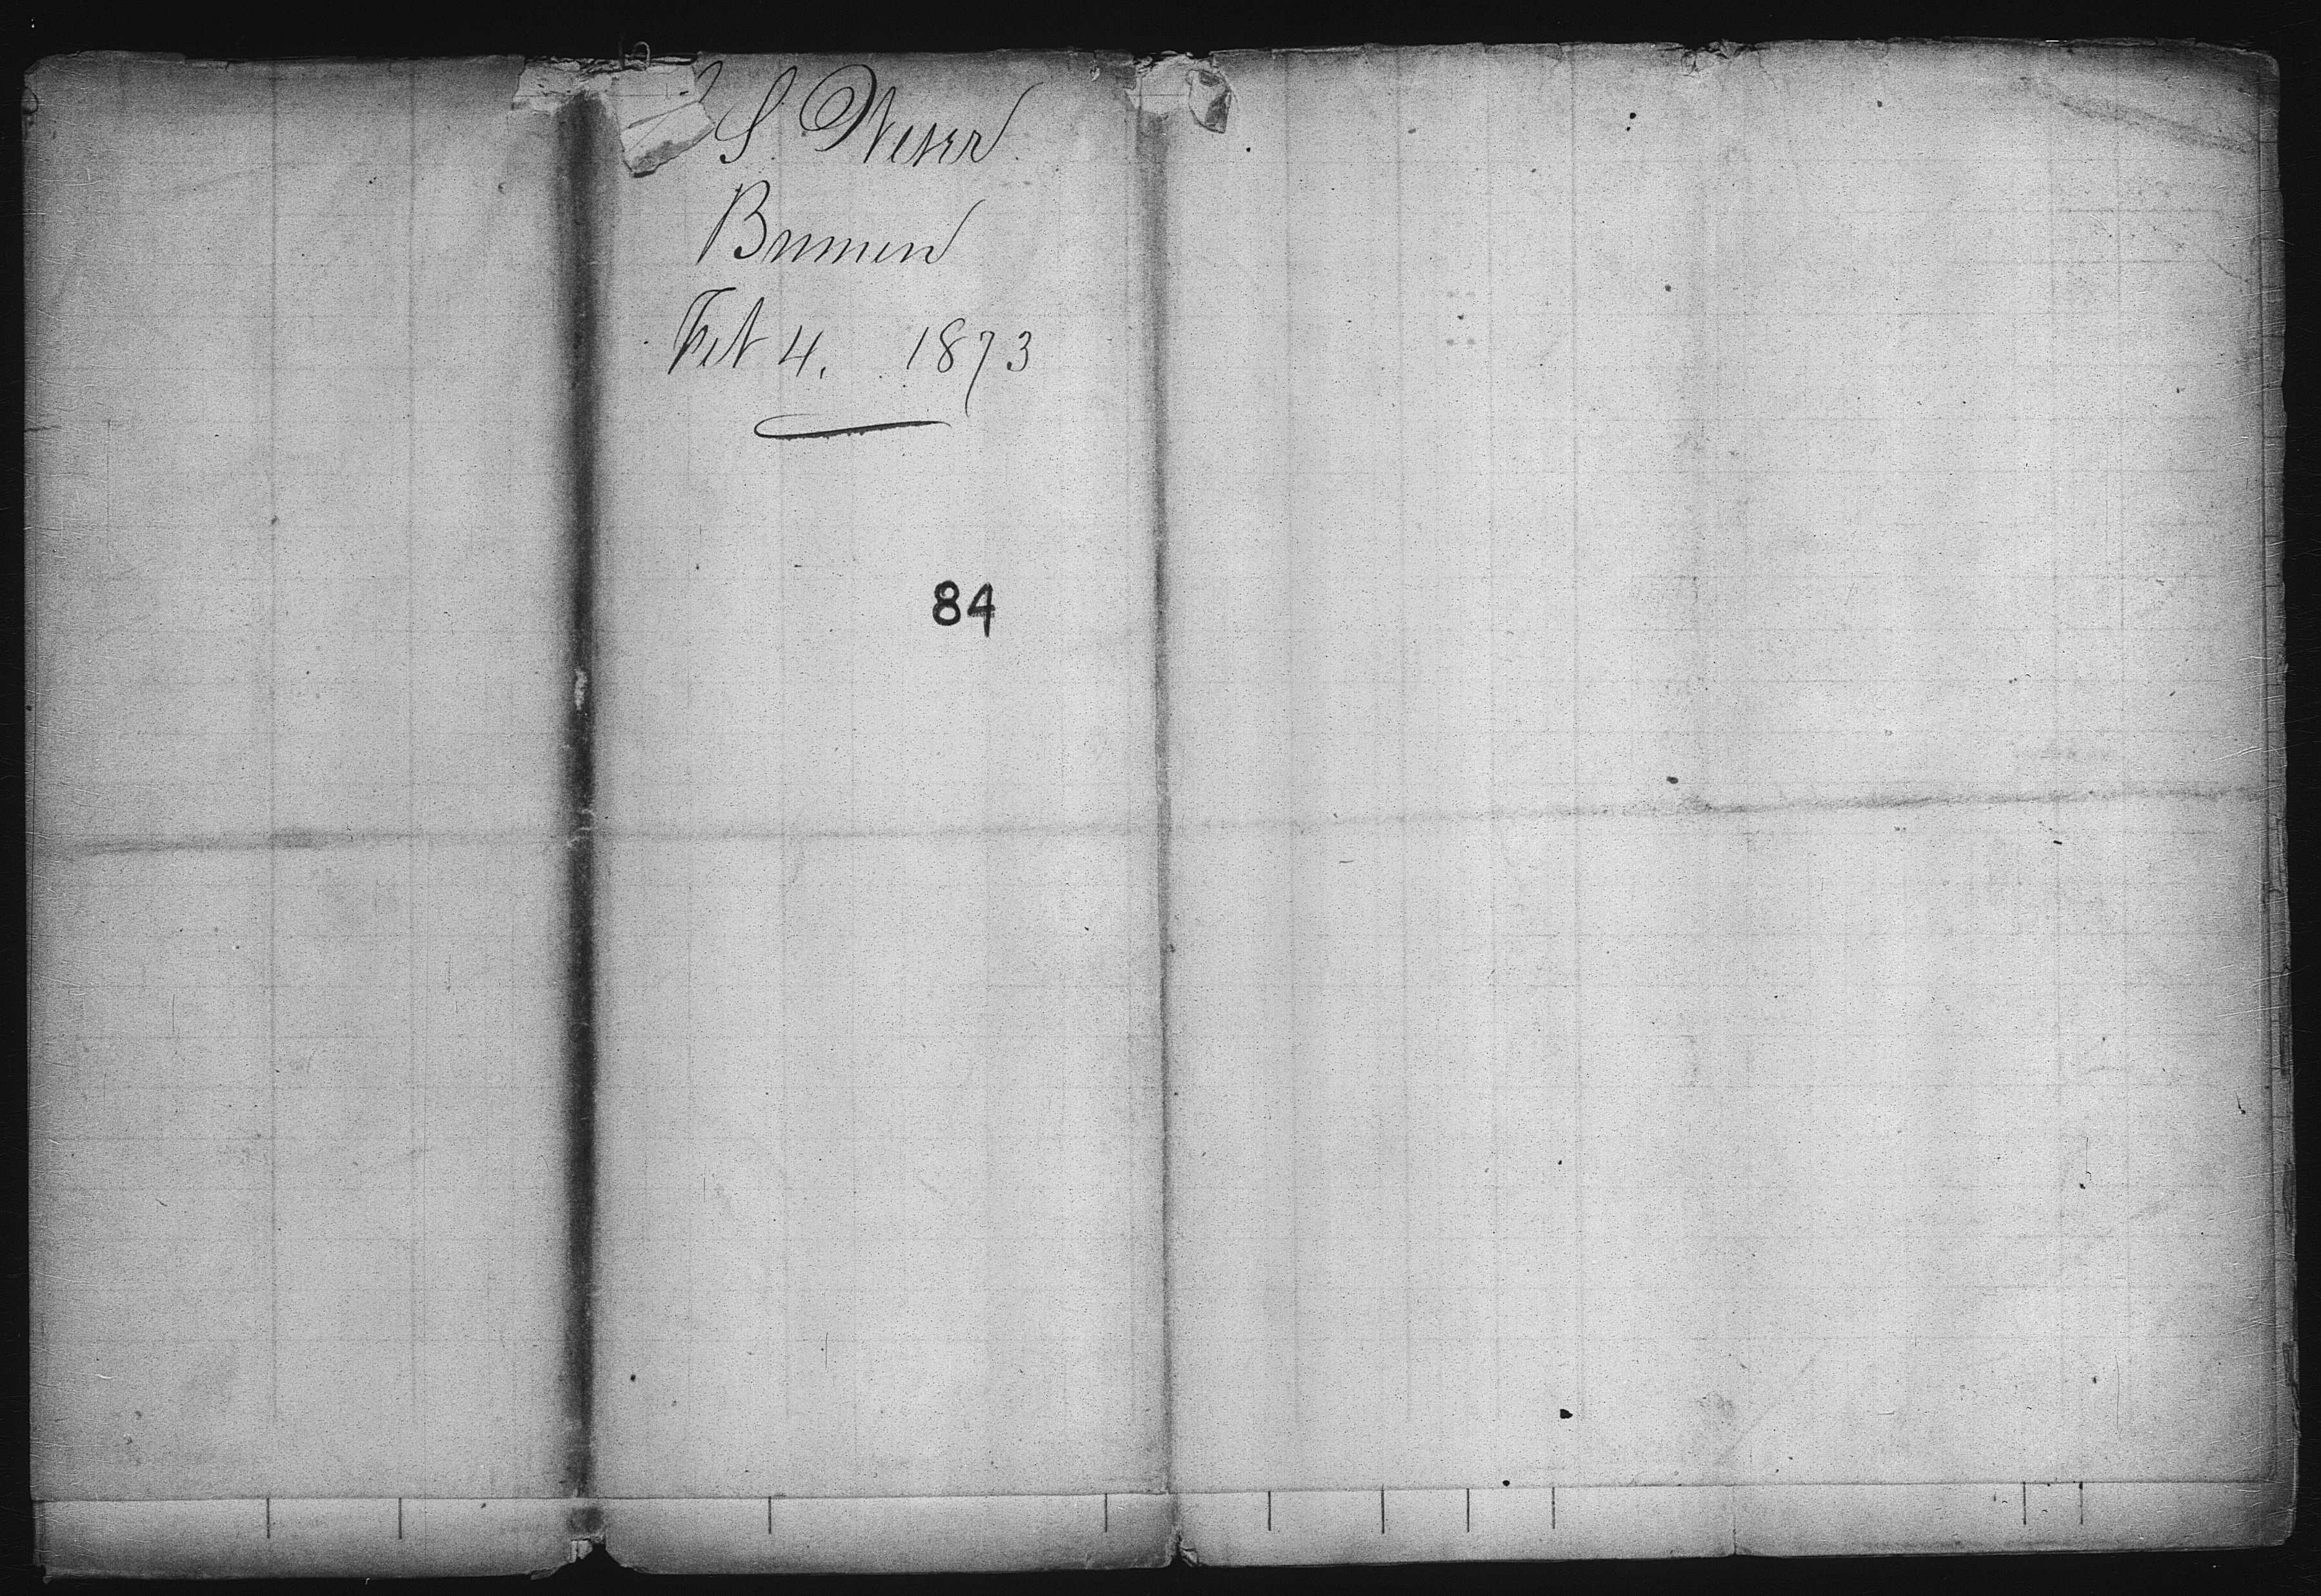 S. Weser
Bremen
Feb 4. 1873
84